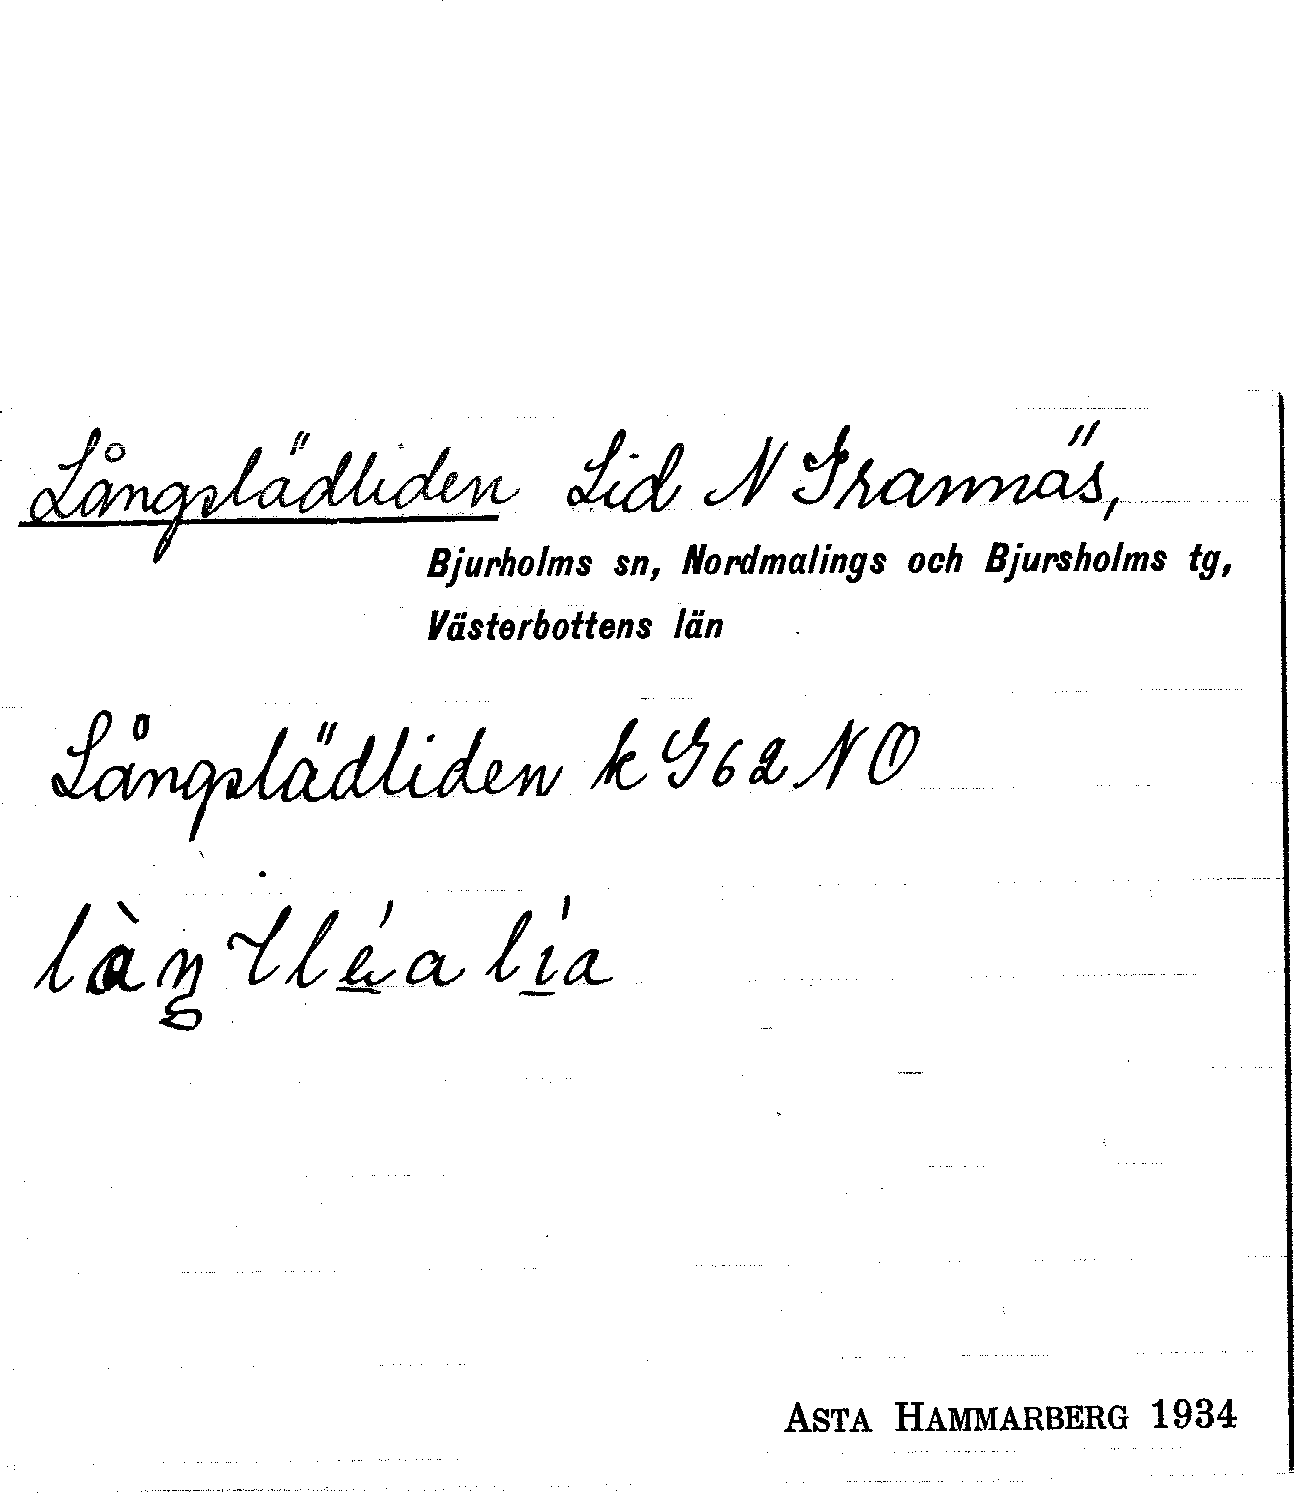 Långslädliden Lid N Grannäs,
Bjurholms sn, Nordmalings och Bjursholms tg,
Västerbottens län
Långslädliden k G62 NO
ASTA HAMMARBERG 1934